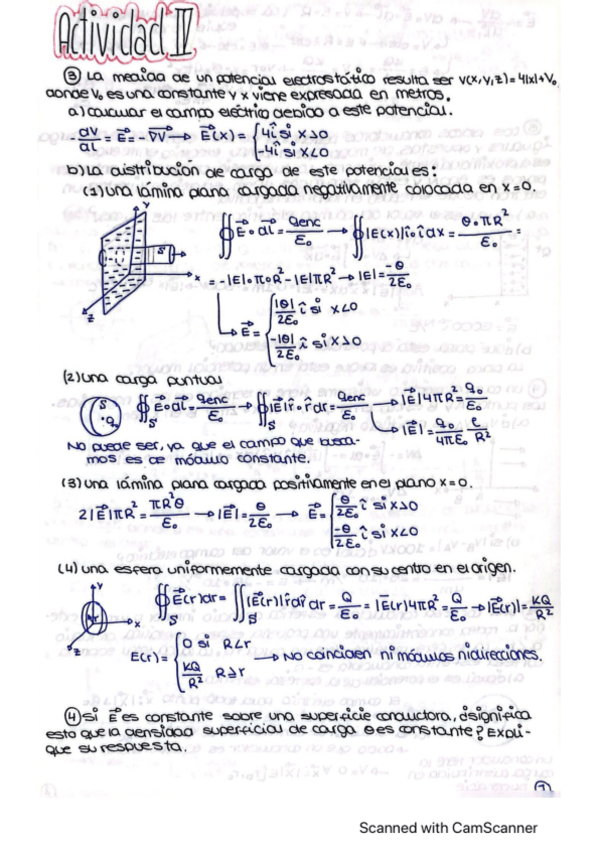 Actividad IV
③ La medida de un potencial electrostático resulta ser V(x,y,z)=4|x|+V₀
donde V₀ es una constante y x viene expresada en metros.
a) calcular el campo eléctrico debido a este potencial.
-dV/dL = E⃗ = -∇⃗V → E⃗(x) = { 4î si x>0
-4î si x<0
b) La distribución de carga de este potencial es:
(1) una lámina plana cargada negativamente colocada en x=0.
Y
S
x
z
∯ E⃗·dL⃗ = qenc/ε₀ → ∯|E(x)|î·î dx = θ·πR²/ε₀ =
= -|E|·π·R² - |E|πR² → |E| = -θ/2ε₀
↳ E⃗ = { |θ|/2ε₀ î si x<0
-|θ|/2ε₀ î si x>0
(2) una carga puntual
S
·q₀
∯ E⃗·dL⃗ = qenc/ε₀ → ∯|E|r̂·r̂ dr = qenc/ε₀ → |E|4πR² = q₀/ε₀
S
→ |E| = q₀/4πε₀
No puede ser, ya que el campo que busca-
mos es de módulo constante.
(3) una lámina plana cargada positivamente en el plano x=0.
2|E⃗|πR² = πR²θ/ε₀ → |E| = θ/2ε₀ → E⃗ = { θ/2ε₀ î si x>0
-θ/2ε₀ î si x<0
(4) una esfera uniformemente cargada con su centro en el origen.
Y
x
z
∯ E⃗(r)dr = ∬|E⃗(r)|r̂ dr̂ dr = Q/ε₀ = |E(r)|4πR² = Q/ε₀ → |E(r)| = KQ/R²
S
E(r) = { 0 si R<r
KQ/R² R≥r
→ No coinciden ni módulos ni direcciones.
④ Si E⃗ es constante sobre una superficie conductora, ¿significa
esto que la densidad superficial de carga θ es constante? Expli-
que su respuesta.
①
Scanned with CamScanner